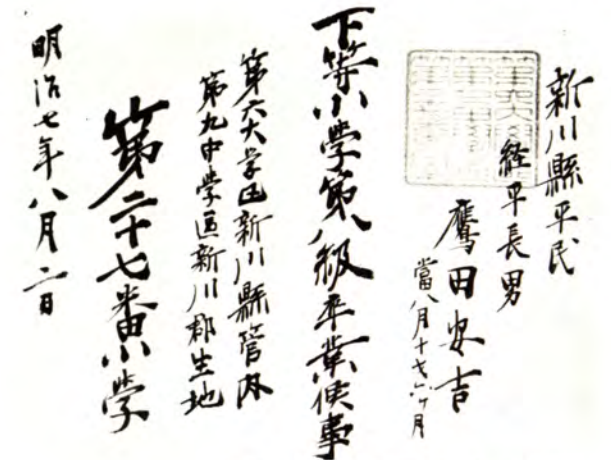 新川縣平民
経平長男
鷹田安吉
當八月十七年六ヶ月
下等小學第八級卒業候事
第六大学区新川縣管内
第九中学區新川郡生地
第二十七番小学
明治七年八月二日